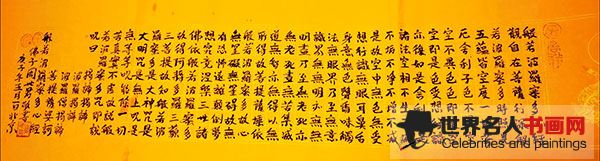 般若波羅蜜多心經
觀自在菩薩行深
般若波羅蜜多時照見
五蘊皆空度一切苦
厄舍利子色不異
空空不異色色即是
空空即是色受想行識
亦復如是舍利子是
諸法空相不生不滅
不垢不淨不增不減
是故空中無色無受
想行識無眼耳鼻舌
身意無色聲香味觸
法無眼界乃至無意
識界無無明亦無無
明盡乃至無老死亦
無老死盡無苦集滅
道無智亦無得以無
所得故菩提薩埵依
般若波羅蜜多故心
無罣礙無罣礙故無
有恐怖遠離顛倒夢
想究竟涅槃三世諸
佛依般若波羅蜜多
故得阿耨多羅三藐
三菩提故知般若波羅蜜
多是大神咒是
大明咒是無上咒是
無等等咒能除一切苦
真實不虛故說般
若波羅蜜多咒即說
咒曰
揭諦揭諦
波羅揭諦
波羅僧揭諦
菩提薩婆訶
般若波羅蜜多心經
佛子
庚子年五月 北京
世界名人书画网
Celebrities and paintings